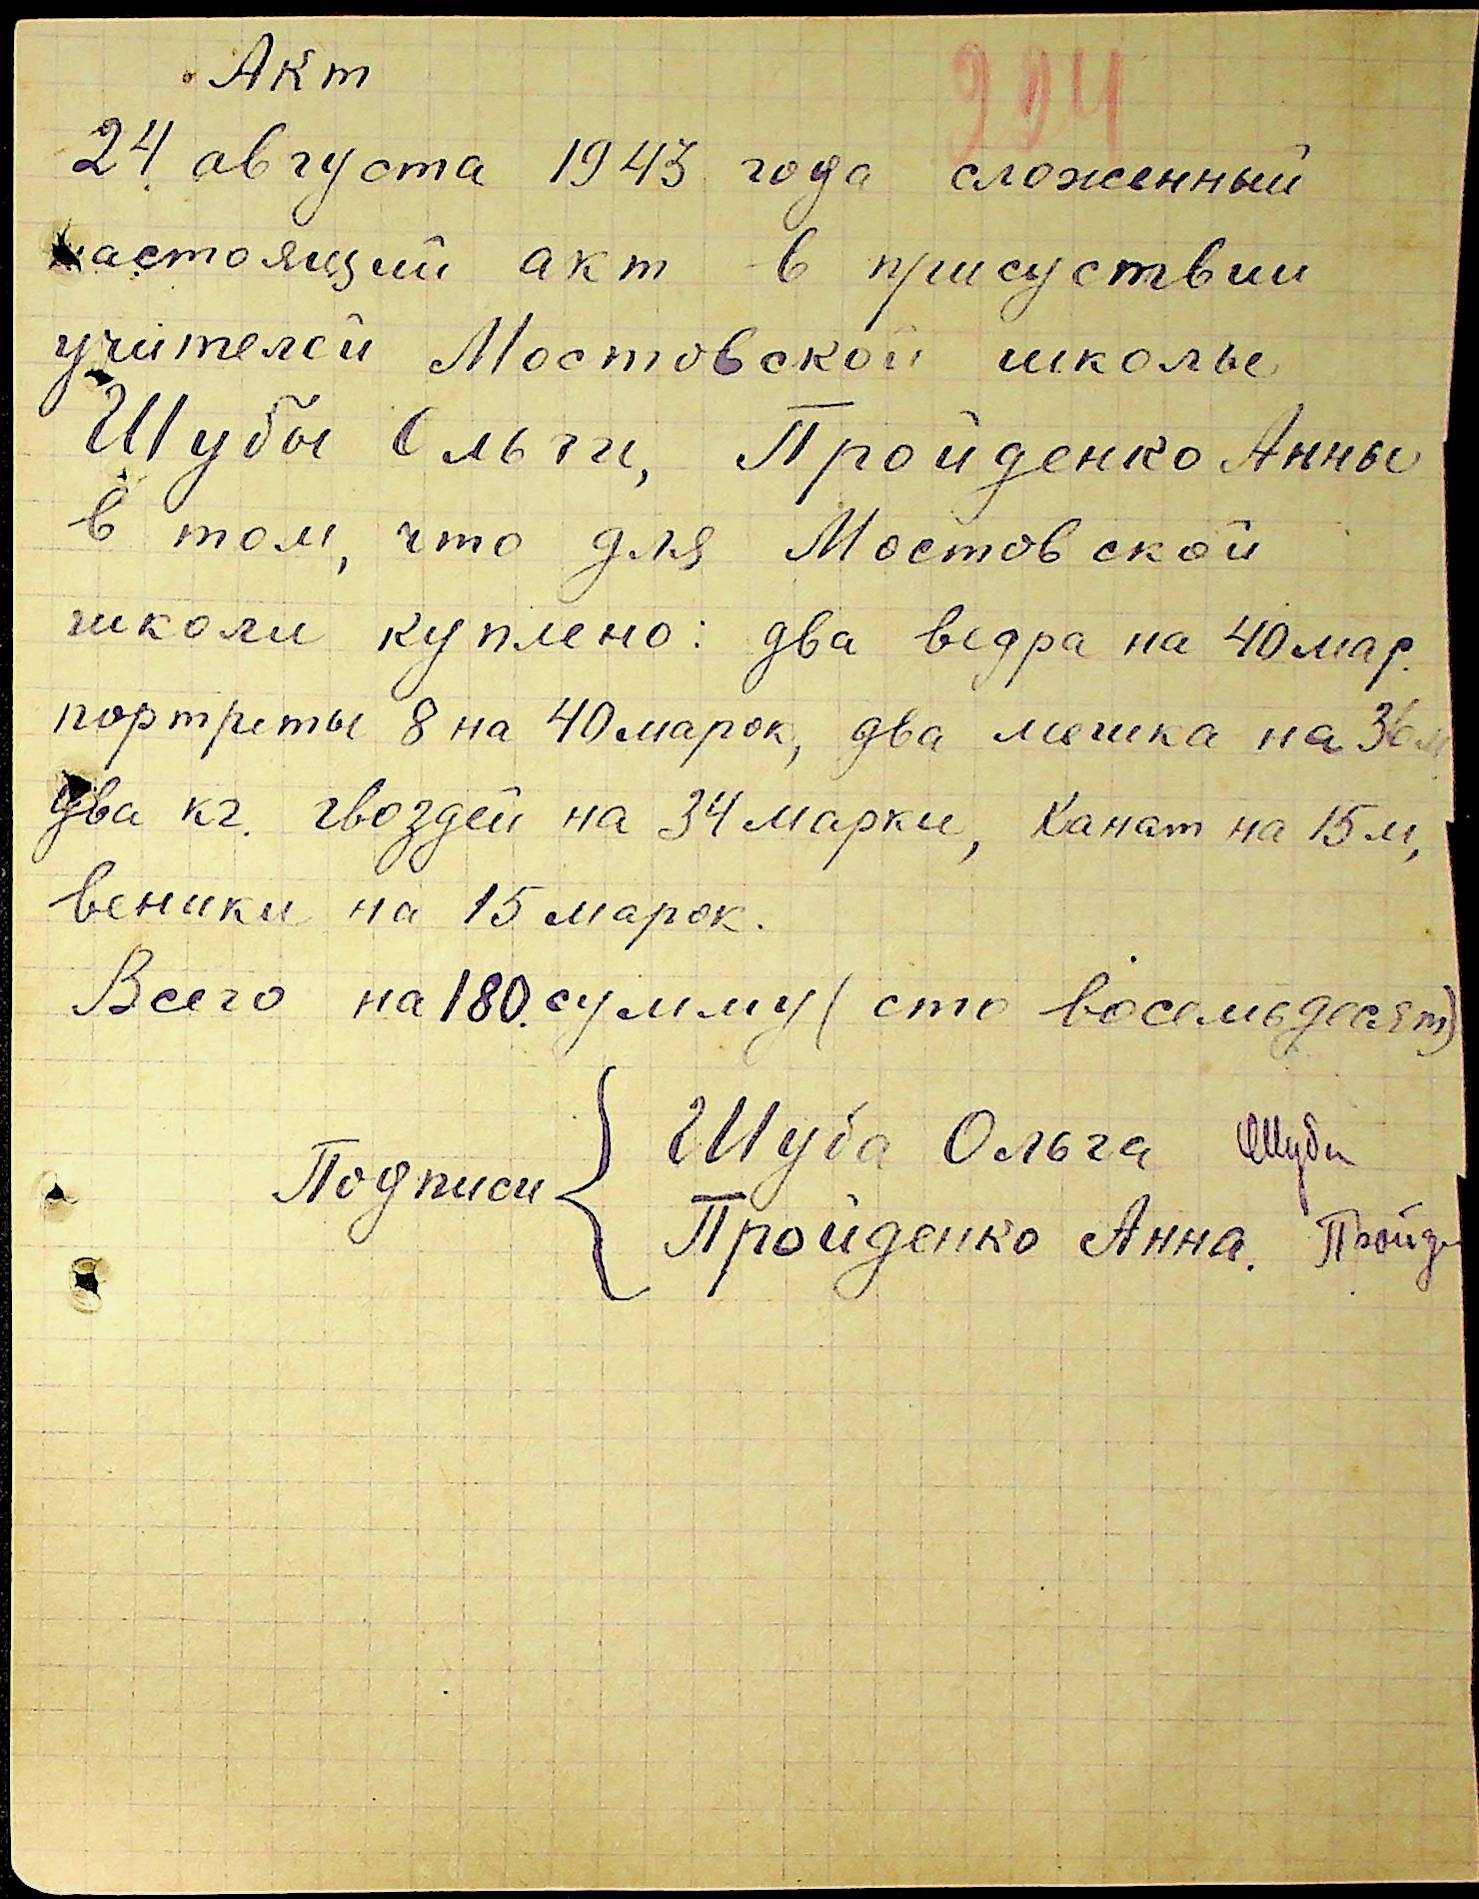 Акт
224
24. августа 1943 года сложенный
настоящий акт в присуствии
учителей Мостовской школы
Шубы Ольги, Пройденко Анны
в том, что для Мостовской
школи куплено: два ведра на 40 мар.
портреты 8 на 40 марок, два мешка на 36 м
два кг. гвоздей на 34 марки, Канат на 15 м,
веники на 15 марок.
Всего на 180. сумму (сто восемьдесят)
Подписи { Шуба Ольга ОШуба
Пройденко Анна. Пройде